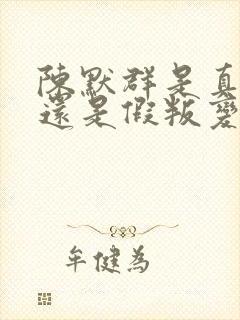 陳默群是真
還是假叛變
牟健為